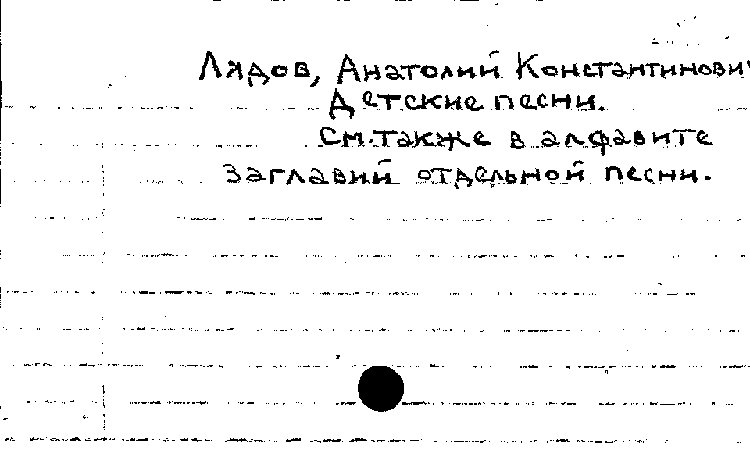 Лядов, Анатолий Константинович
Детские песни.
См. также в алфавите
заглавий отдельной песни.